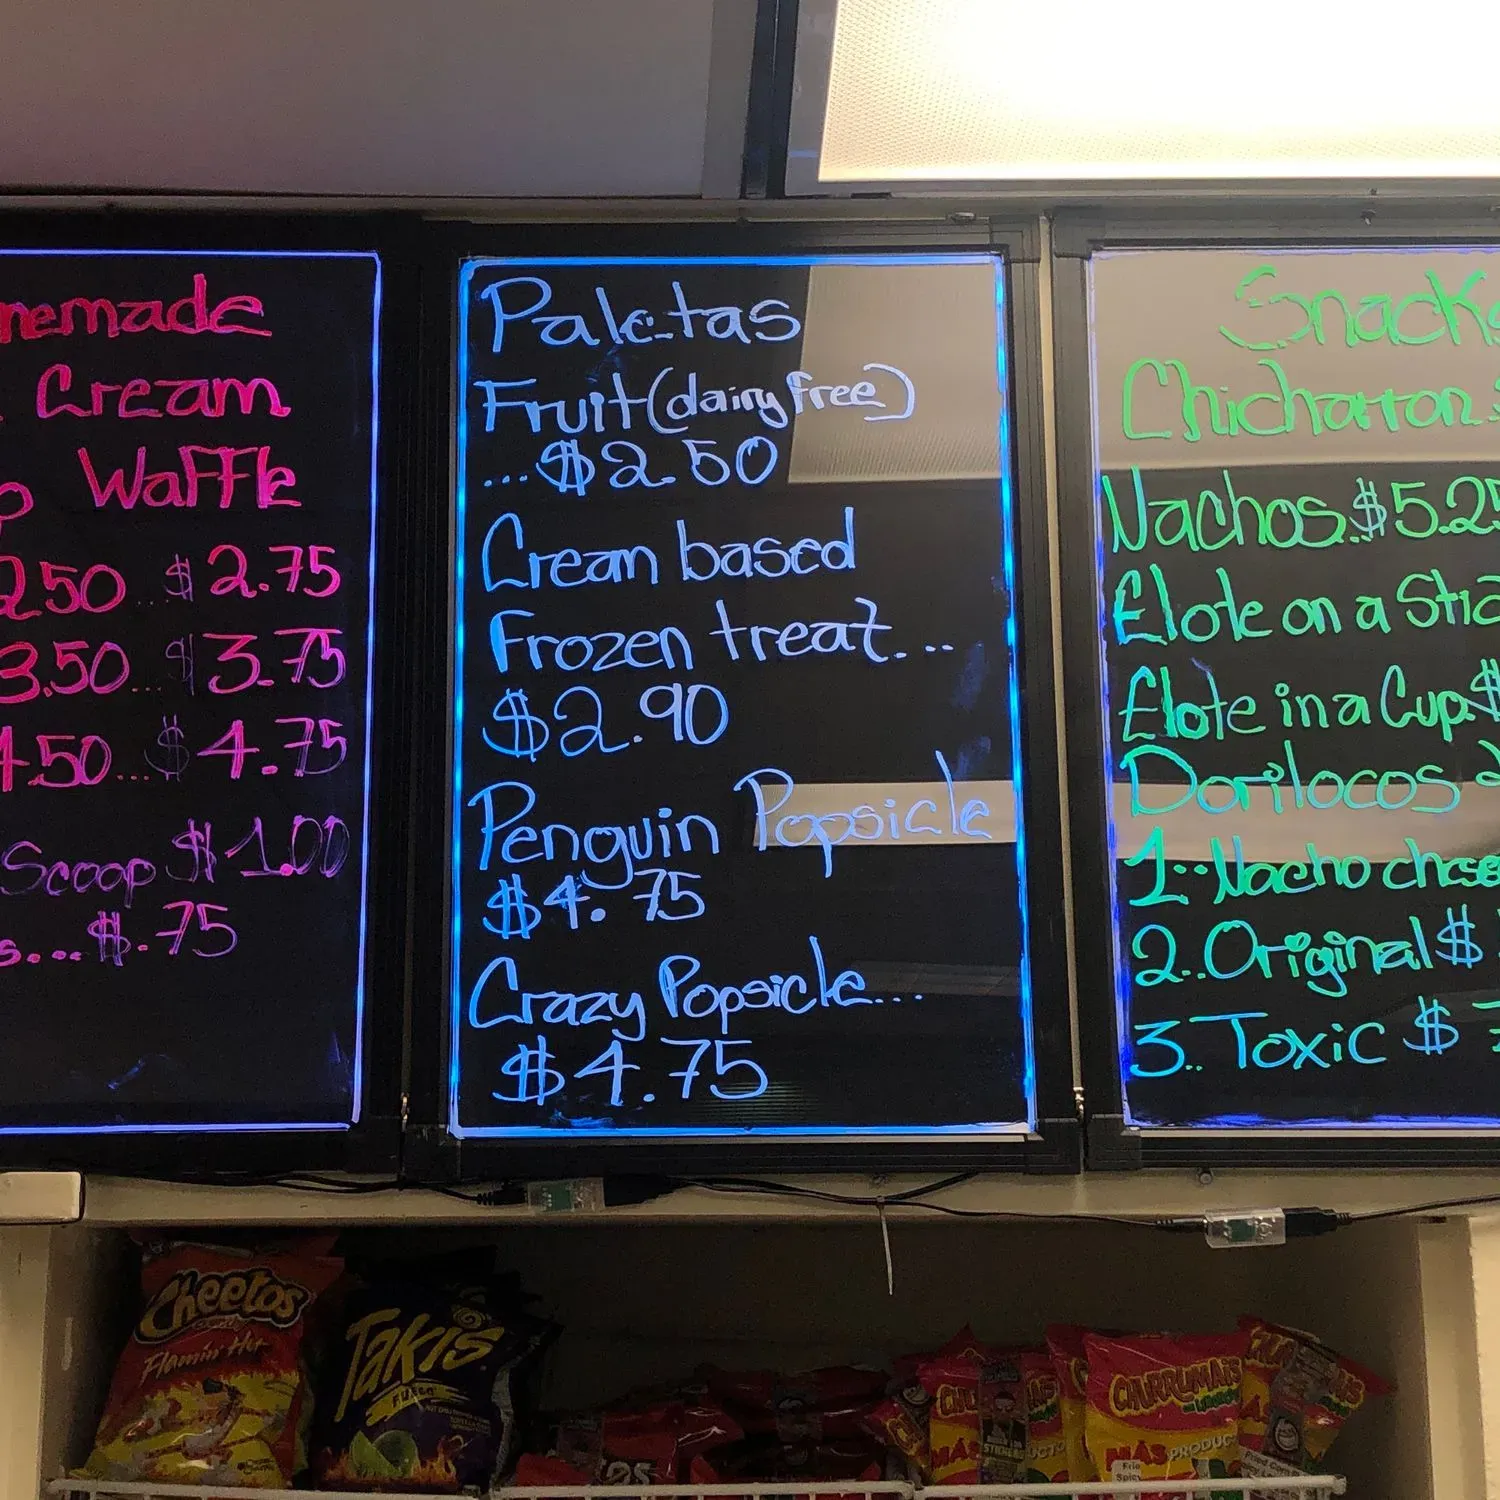 Cream
Waffle
2.50 ... $2.75
3.50 ... $3.75
4.50 ... $4.75
Scoop $1.00
... $.75
Paletas
Fruit (dairy free)
... $2.50
Cream based
Frozen treat...
$2.90
Penguin Popsicle
$4.75
Crazy Popsicle...
$4.75
Snacks
Chicharron
Nachos..$5.25
Elote on a
Elote in a Cup.$
Dorilocos
1..Nacho
2..Original $
3..Toxic $
Cheetos
Crunchy
Flamin' Hot
Takis
FUEGO
CHURRUMAIS
MÁS